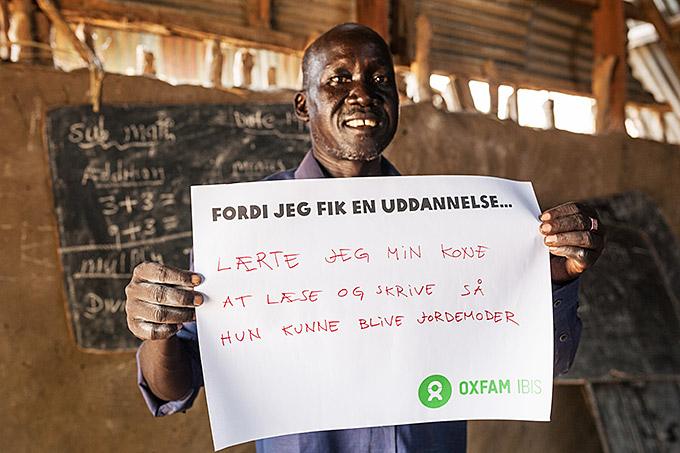 Sub math
Date
Addition
Minus
3+3=
9+3=
FORDI JEG FIK EN UDDANNELSE...
LÆRTE JEG MIN KONE
AT LÆSE OG SKRIVE SÅ
HUN KUNNE BLIVE JORDEMODER
OXFAM IBIS